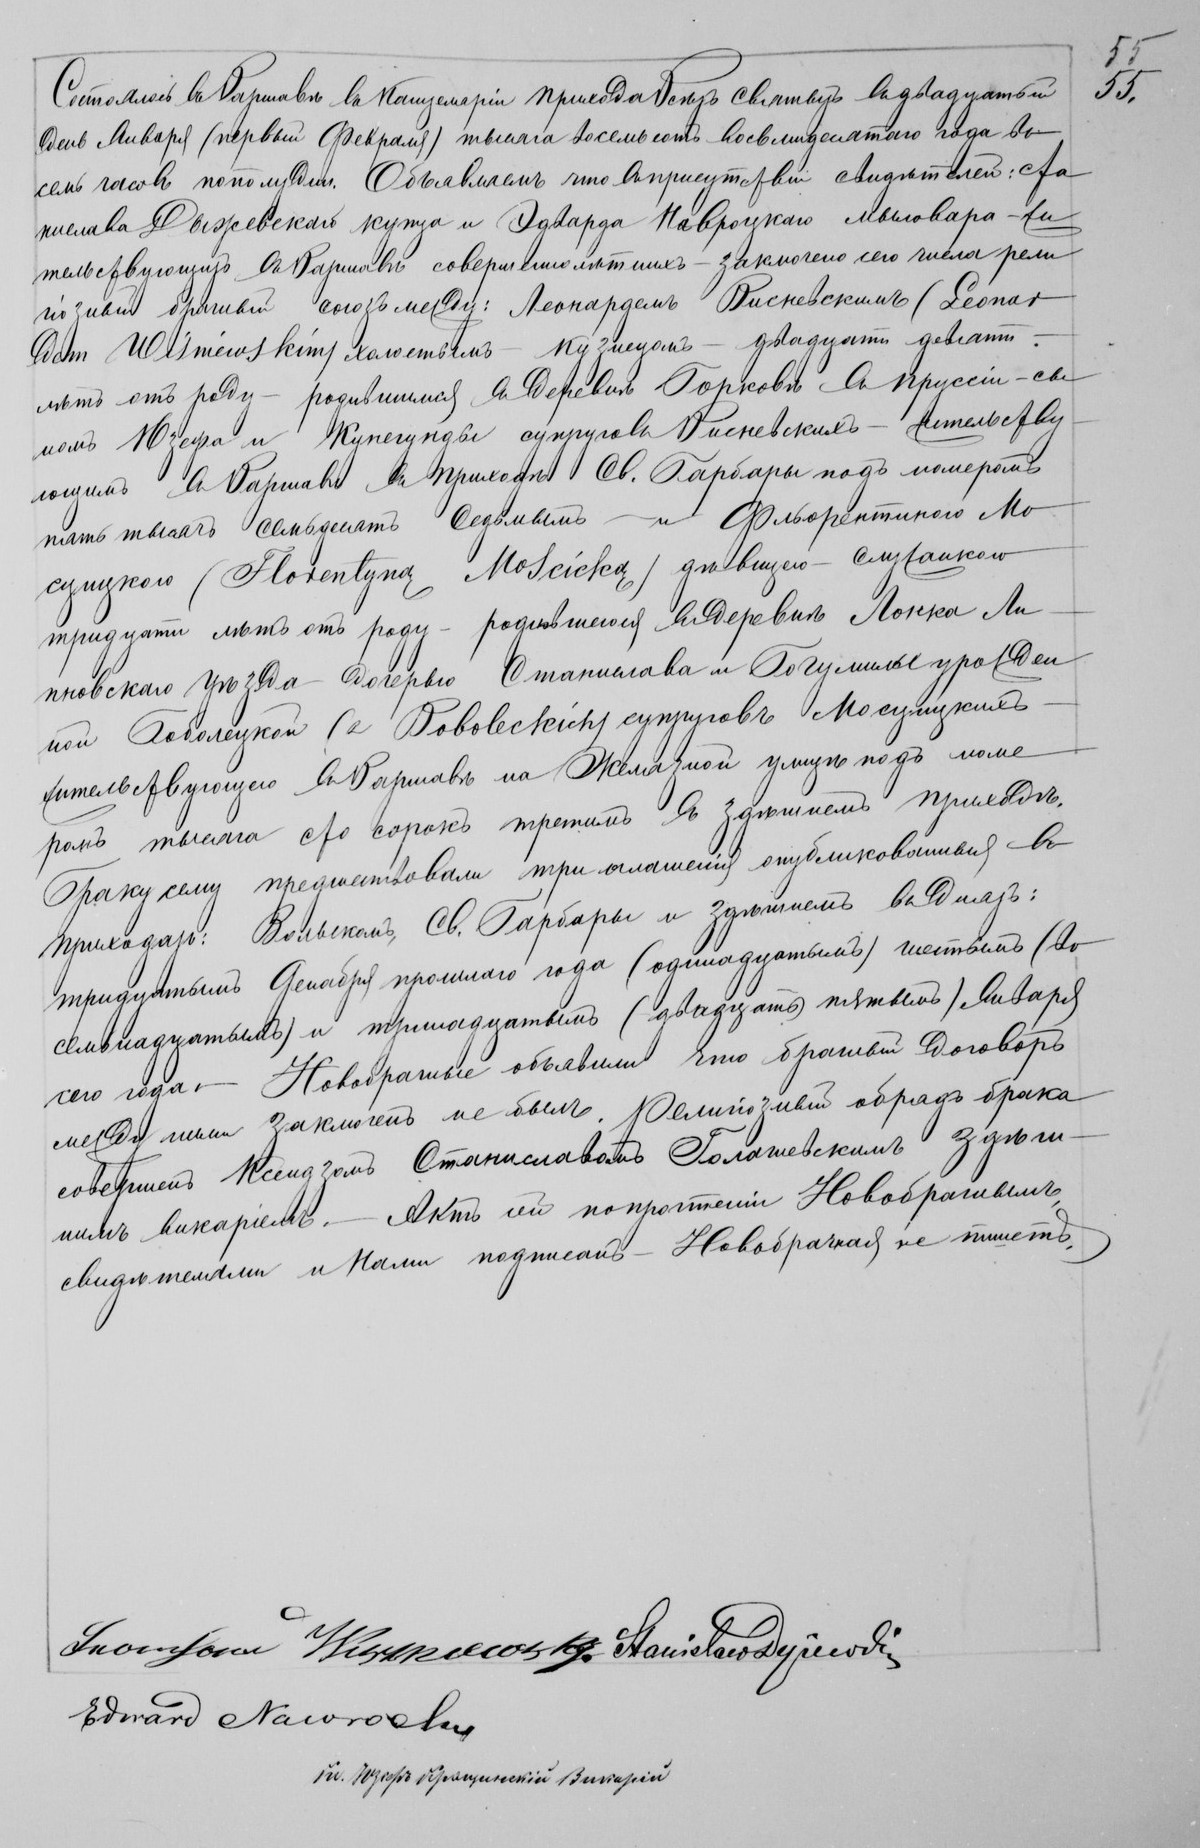 55
55.
Состоялось въ Варшавѣ въ Канцеляріи прихода Всѣхъ Святыхъ въ двадцатый
день Января (первый Февраля) тысяча восемьсотъ восьмидесятаго года во
семь часовъ пополудни. Объявляемъ что въ присутствіи свидѣтелей: Ста
нислава Дыжевскаго купца и Эдварда Навроцкаго мыловара – жи
тельствующихъ въ Варшавѣ совершеннолѣтнихъ – заключено сего числа рели
гіозный брачный союзъ между: Леонардомъ Висневскимъ (Leonar
dem Wiśniewskim) холостымъ – кузнецомъ – двадцати девяти
лѣтъ отъ роду – родившимся въ деревнѣ Горковѣ въ Пруссіи – сы
номъ Юзефа и Кунегунды супруговъ Висневскихъ – жительству
ющимъ въ Варшавѣ въ приходѣ Св. Барбары подъ номеромъ
пять тысячъ семьдесятъ седьмымъ – и Флёрентиною Мо
сцицкою (Florentyną Mościcką) дѣвицею – служанкою
тридцати лѣтъ отъ роду – родившеюся въ деревнѣ Лонка Ли
пновскаго уѣзда – дочерью Станислава и Богумилы урожден
ной Боболецкой (z Boboleckich) супруговъ Мосцицкихъ –
жительствующею въ Варшавѣ на Желязной улицѣ подъ номе
ромъ тысяча сто сорокъ третимъ въ здѣшнемъ приходѣ.
Браку сему предшествовали три оглашенія опубликованныя въ
приходахъ: Вольскомъ, Св. Барбары и здѣшнемъ въ дняхъ:
тридцатымъ Декабря прошлаго года (одинадцатымъ) шестымъ (во
семьнадцатымъ) и тринадцатымъ (двадцать пятымъ) Января
сего года. – Новобрачные объявили что брачный договоръ
между ними заключенъ не былъ. Религіозный обрядъ брака
совершенъ Ксендзомъ Станиславомъ Голашевскимъ здѣш
нимъ викаріемъ. – Актъ сей по прочтеніи Новобрачнымъ,
свидѣтелями и Нами подписанъ – Новобрачная не пишетъ.
Wiszniewski Stanisław Dyżewski
Edward Nawrocki
Кс. Юзефъ Викарій